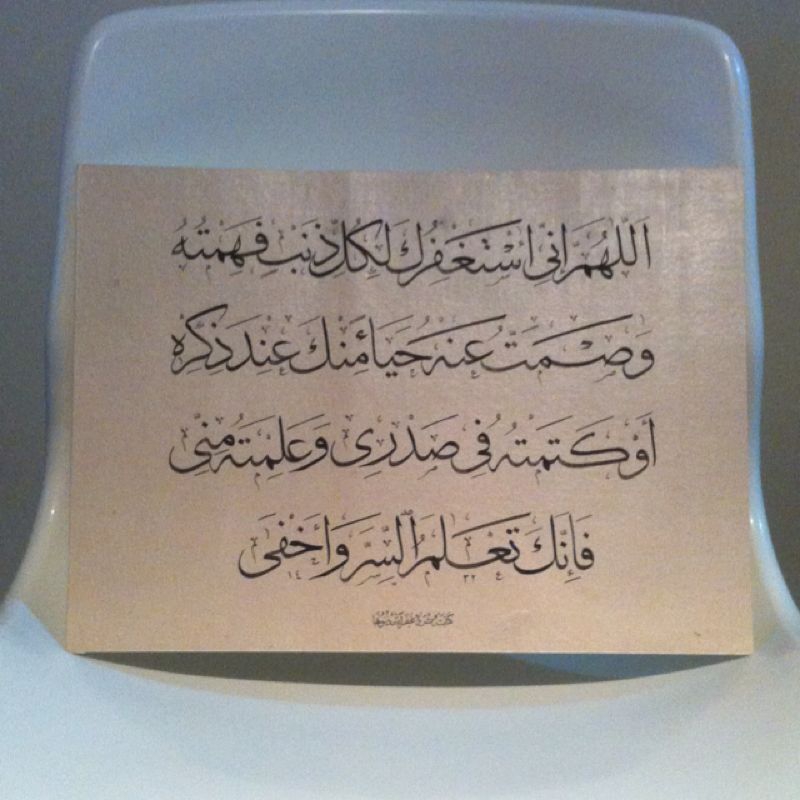 اَللّٰهُمَّ اِنّٖى اَسْتَغْفِرُكَ لِكُلِّ ذَنْبٍ فَهِمْتُهُ
وَصَمَتُّ عَنْهُ حَيَاءً مِنْكَ عِنْدَ ذِكْرِهِ
اَوْ كَتَمْتُهُ فِى صَدْرِى وَعَلِمْتَهُ مِنِّى
فَاِنَّكَ تَعْلَمُ السِّرَّ وَاَخْفَى
١٤٢٢